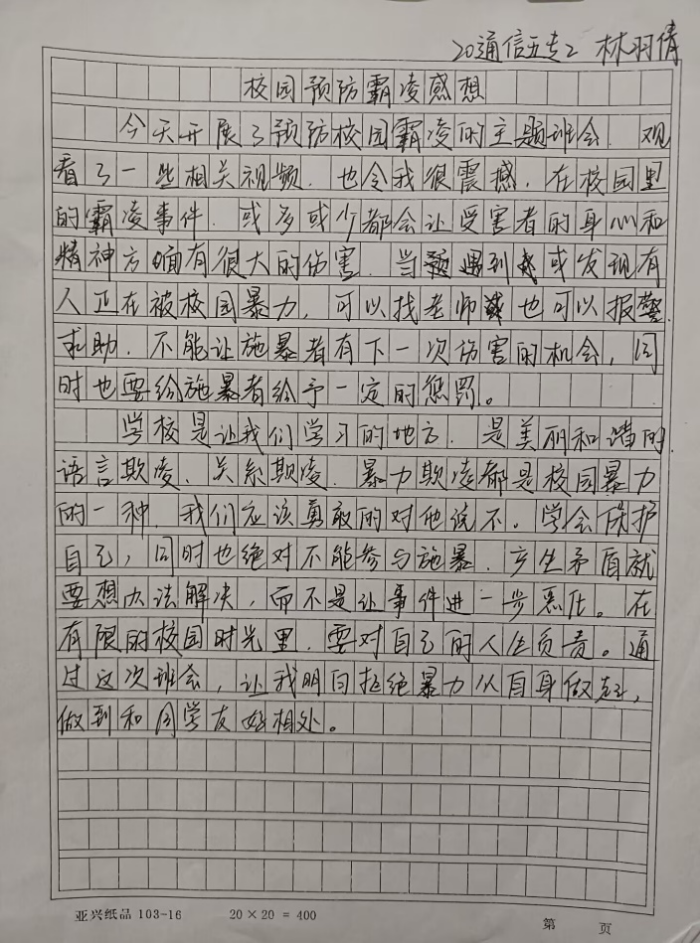 20通信五专2 林羽倩
校园预防霸凌感想
今天开展了预防校园霸凌的主题班会.观
看了一些相关视频.也令我很震撼.在校园里
的霸凌事件.或多或少都会让受害者的身心和
精神方面有很大的伤害.当遇到或发现有
人正在被校园暴力,可以找老师也可以报警.
求助.不能让施暴者有下一次伤害的机会,同
时也要给施暴者给予一定的惩罚。
学校是让我们学习的地方.是美丽和谐的.
语言欺凌、关系欺凌、暴力欺凌都是校园暴力
的一种.我们应该勇敢的对他说不。学会保护
自己,同时也绝对不能参与施暴.产生矛盾就
要想办法解决,而不是让事件进一步恶化。在
有限的校园时光里.要对自己的人生负责。通
过这次班会,让我明白拒绝暴力从自身做起,
做到和同学友好相处。
亚兴纸品 103-16 20×20=400 第 页